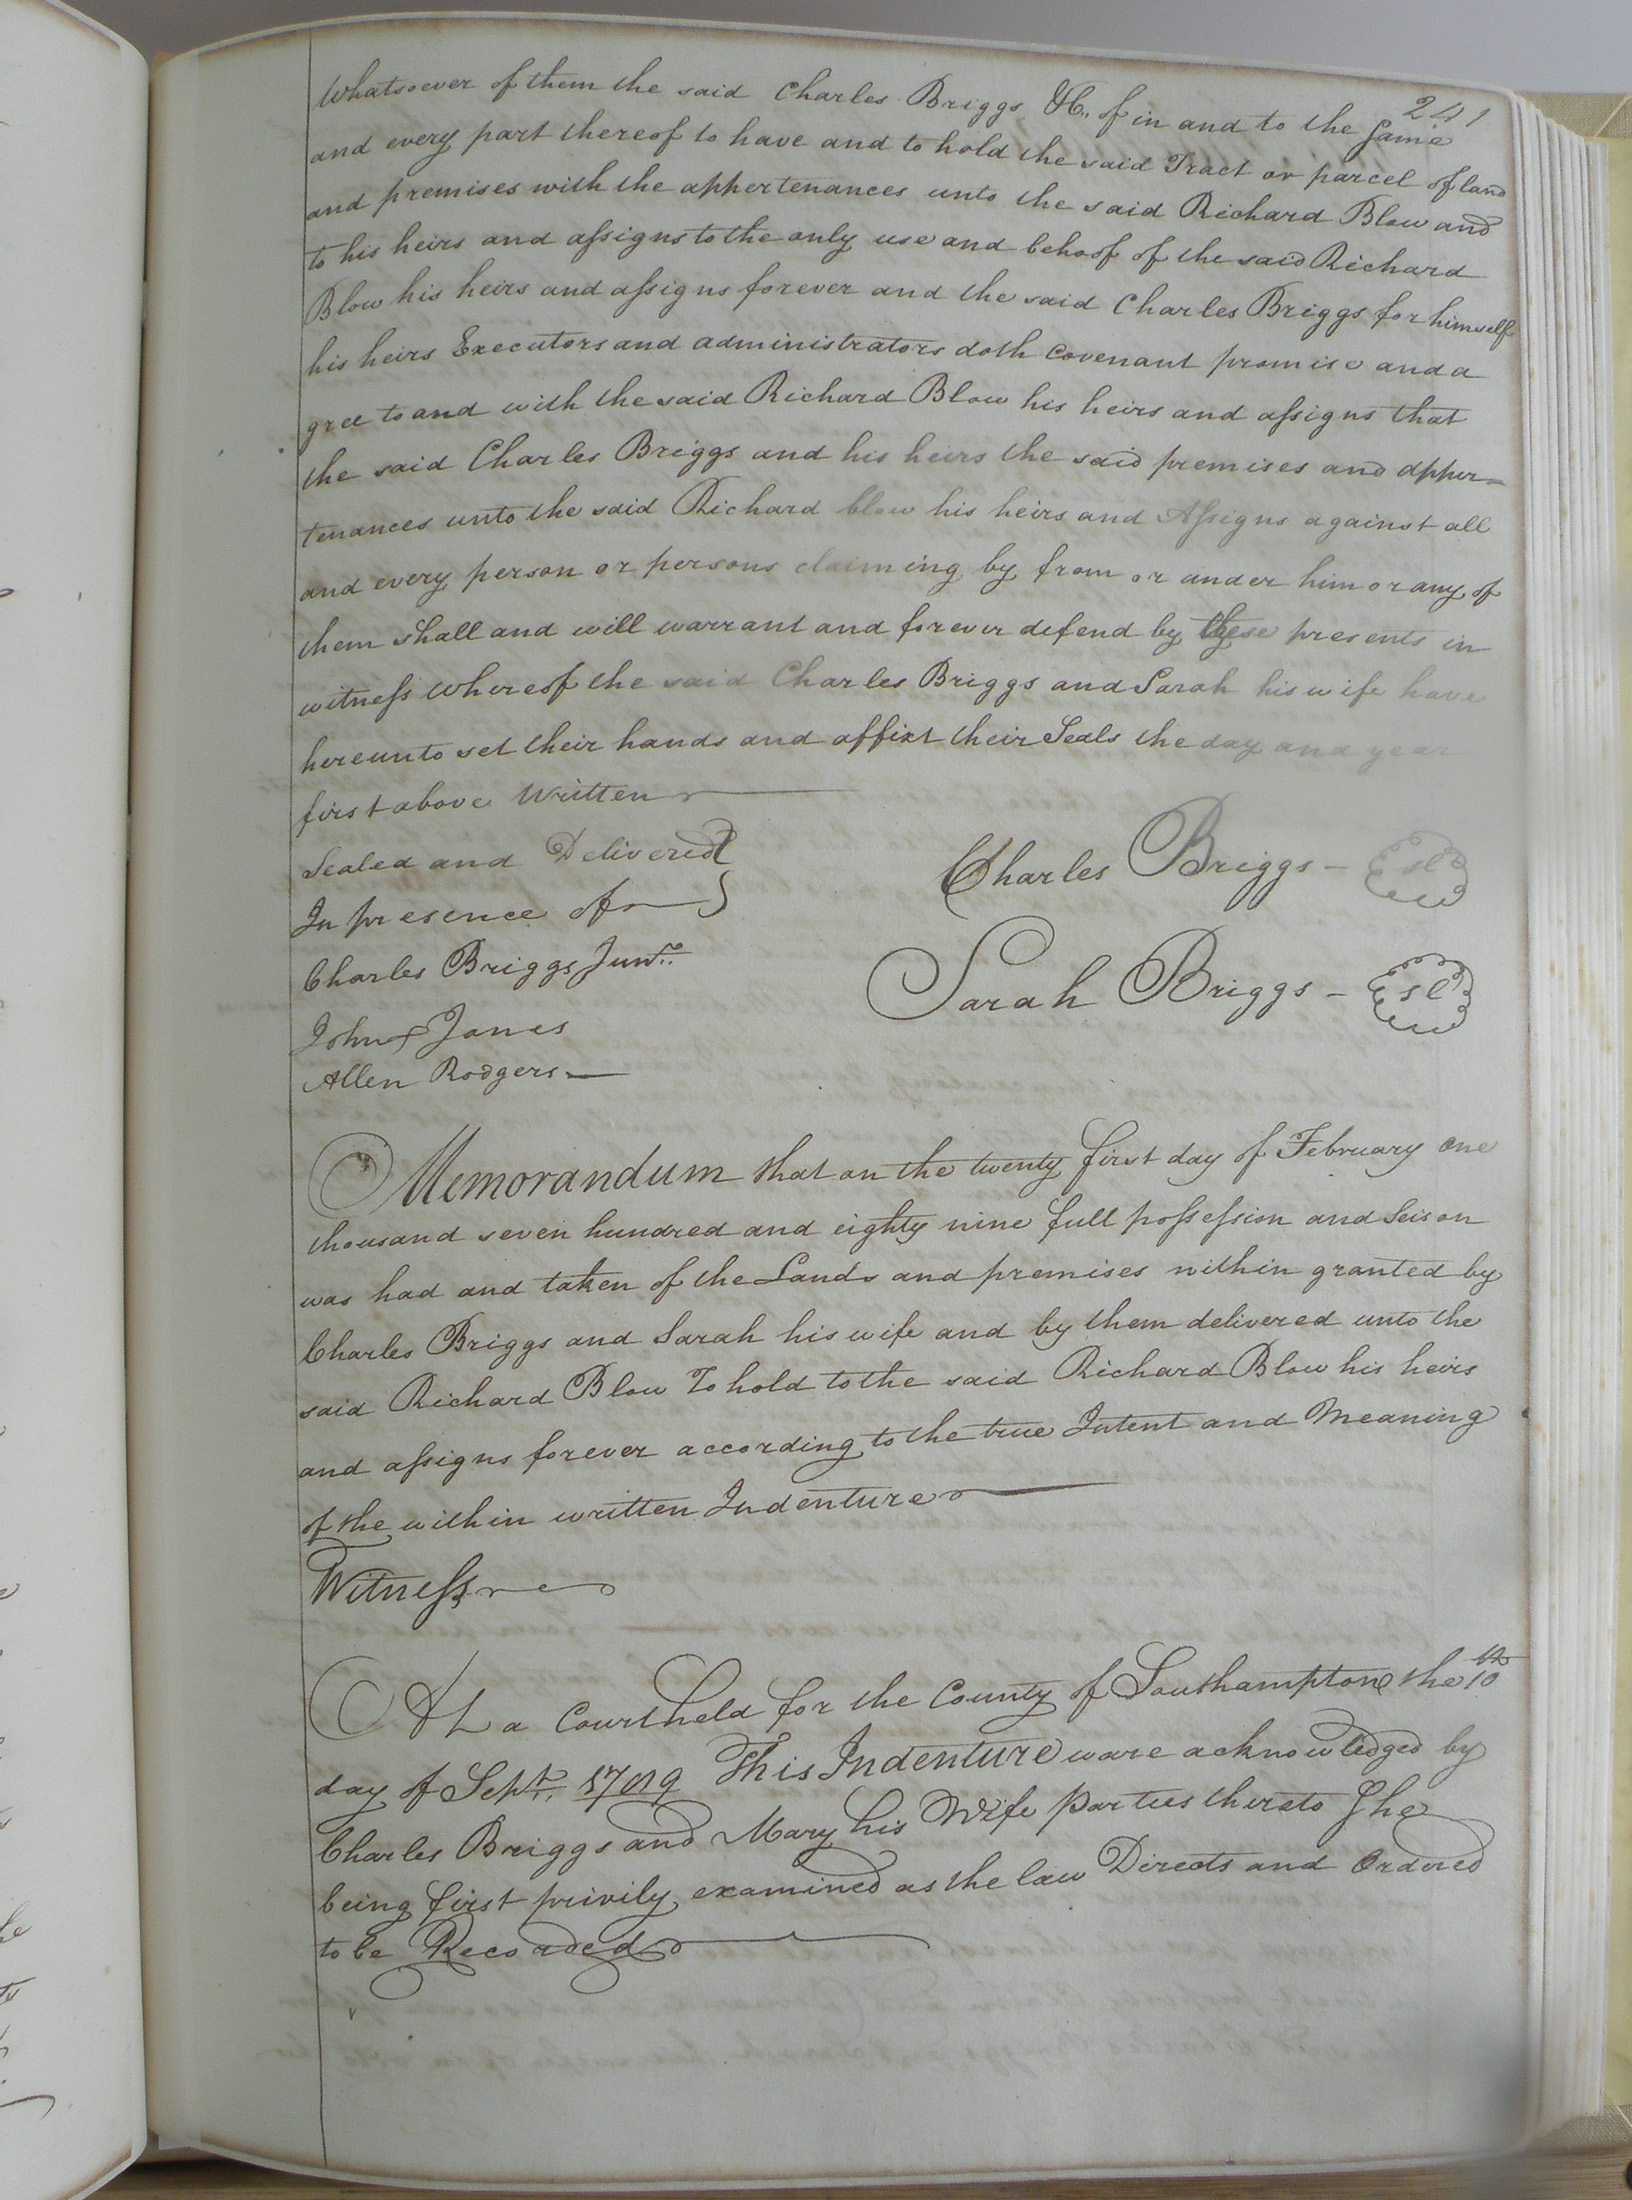 241
Whatsoever of them the said Charles Briggs &c. of in and to the Same
and every part thereof to have and to hold the said Tract or parcel of land
and premises with the appertenances unto the said Richard Blow and
to his heirs and assigns to the only use and behoof of the said Richard
Blow his heirs and assigns forever and the said Charles Briggs for himself
his heirs Executors and administrators doth covenant promise and a
gree to and with the said Richard Blow his heirs and assigns that
the said Charles Briggs and his heirs the said premises and apper=
tenances unto the said Richard blow his heirs and Assigns against all
and every person or persons claiming by from or under him or any of
them shall and will warrant and forever defend by these presents in
witness whereof the said Charles Briggs and Sarah his wife have
hereunto set their hands and affixt their Seals the day and year
first above Written
Sealed and Delivered
In presence of
Charles Briggs Junr.
John Jones
Allen Rodgers
Charles Briggs - sl
Sarah Briggs - sl
Memorandum that on the twenty first day of February one
thousand seven hundred and eighty nine full possession and Seison
was had and taken of the Lands and premises within granted by
Charles Briggs and Sarah his wife and by them delivered unto the
said Richard Blow To hold to the said Richard Blow his heirs
and assigns forever according to the true Intent and Meaning
of the within written Indenture
Witness
At a Court held for the County of Southampton the 10th
day of Sept. 1789 This Indenture ware acknowledged by
Charles Briggs and Mary his Wife parties thereto She
being first privily examined as the law Directs and Ordered
to be Recorded